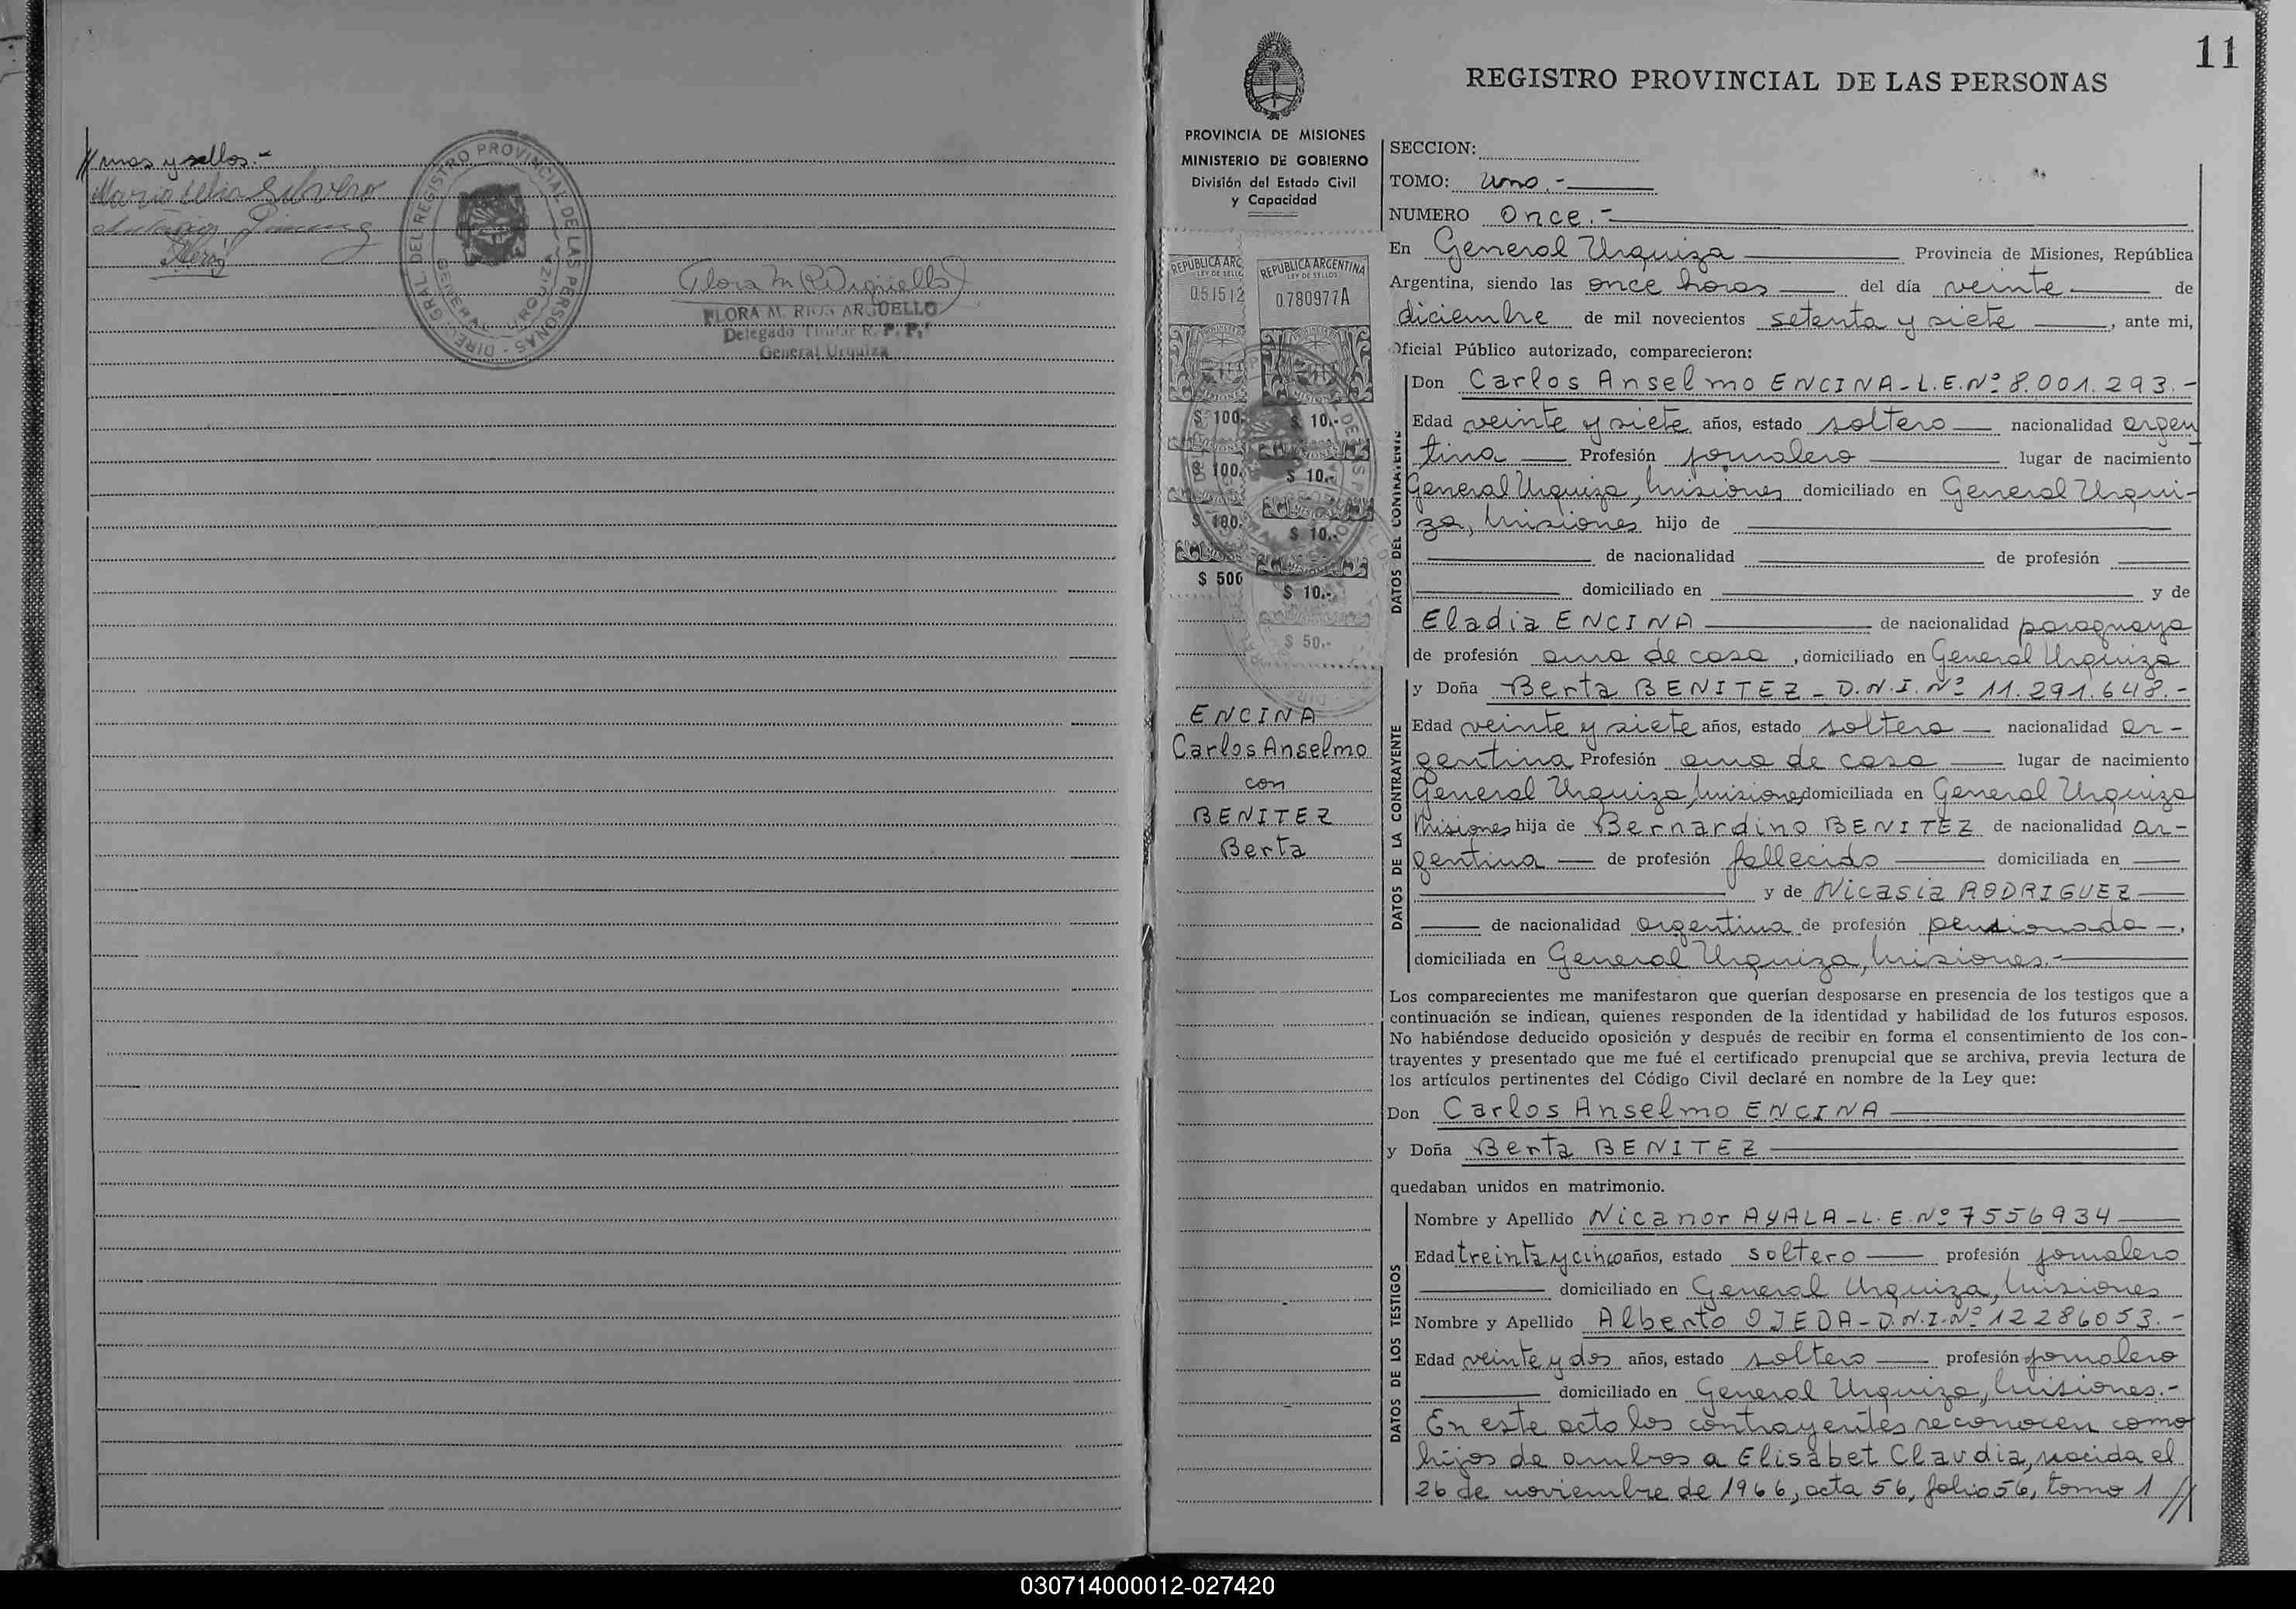 //mas y sellos.-
DIREC. GRAL. DEL REGISTRO PROVINCIAL DE LAS PERSONAS
GENERAL URQUIZA
FLORA M. RIOS ARGÜELLO
Delegado Titular R. P. P.
General Urquiza
11
REGISTRO PROVINCIAL DE LAS PERSONAS
PROVINCIA DE MISIONES
MINISTERIO DE GOBIERNO
División del Estado Civil
y Capacidad
REPUBLICA ARG
LEY DE SELLO
051512
REPUBLICA ARGENTINA
LEY DE SELLOS
0780977A
$ 100.
$ 10.-
$ 100.
$ 10.-
$ 100.
$ 10.-
$ 500
$ 10.-
$ 50.-
ENCINA
Carlos Anselmo
con
BENITEZ
Berta
SECCION:
TOMO: Uno.-
NUMERO Once.-
En General Urquiza Provincia de Misiones, República
Argentina, siendo las once horas del día veinte de
diciembre de mil novecientos setenta y siete, ante mi,
Oficial Público autorizado, comparecieron:
DATOS DEL CONTRAYENTE
Don Carlos Anselmo ENCINA - L.E.Nº 8.001.293.-
Edad veinte y siete años, estado soltero nacionalidad argen
tina Profesión jornalero lugar de nacimiento
General Urquiza, Misiones domiciliado en General Urqui-
za, Misiones hijo de
de nacionalidad de profesión
domiciliado en y de
Eladia ENCINA de nacionalidad paraguaya
de profesión ama de casa, domiciliado en General Urquiza
DATOS DE LA CONTRAYENTE
y Doña Berta BENITEZ - D.N.I. Nº 11.291.648.-
Edad veinte y siete años, estado soltera nacionalidad ar-
gentina Profesión ama de casa lugar de nacimiento
General Urquiza, Misiones domiciliada en General Urquiza
Misiones hija de Bernardino BENITEZ de nacionalidad ar-
gentina de profesión fallecido domiciliada en
y de Nicasia RODRIGUEZ
de nacionalidad argentina de profesión pensionada,
domiciliada en General Urquiza, Misiones.-
Los comparecientes me manifestaron que querían desposarse en presencia de los testigos que a
continuación se indican, quienes responden de la identidad y habilidad de los futuros esposos.
No habiéndose deducido oposición y después de recibir en forma el consentimiento de los con-
trayentes y presentado que me fué el certificado prenupcial que se archiva, previa lectura de
los artículos pertinentes del Código Civil declaré en nombre de la Ley que:
Don Carlos Anselmo ENCINA
y Doña Berta BENITEZ
quedaban unidos en matrimonio.
DATOS DE LOS TESTIGOS
Nombre y Apellido Nicanor AYALA - L.E.Nº 7556934
Edad treinta y cinco años, estado soltero profesión jornalero
domiciliado en General Urquiza, Misiones
Nombre y Apellido Alberto OJEDA - D.N.I. Nº 12286053.-
Edad veinte y dos años, estado soltero profesión jornalero
domiciliado en General Urquiza, Misiones.-
En este acto los contrayentes reconocen como
hijos de ambos a Elisabet Claudia, nacida el
26 de noviembre de 1966, acta 56, folio 56, tomo 1 //
030714000012-027420